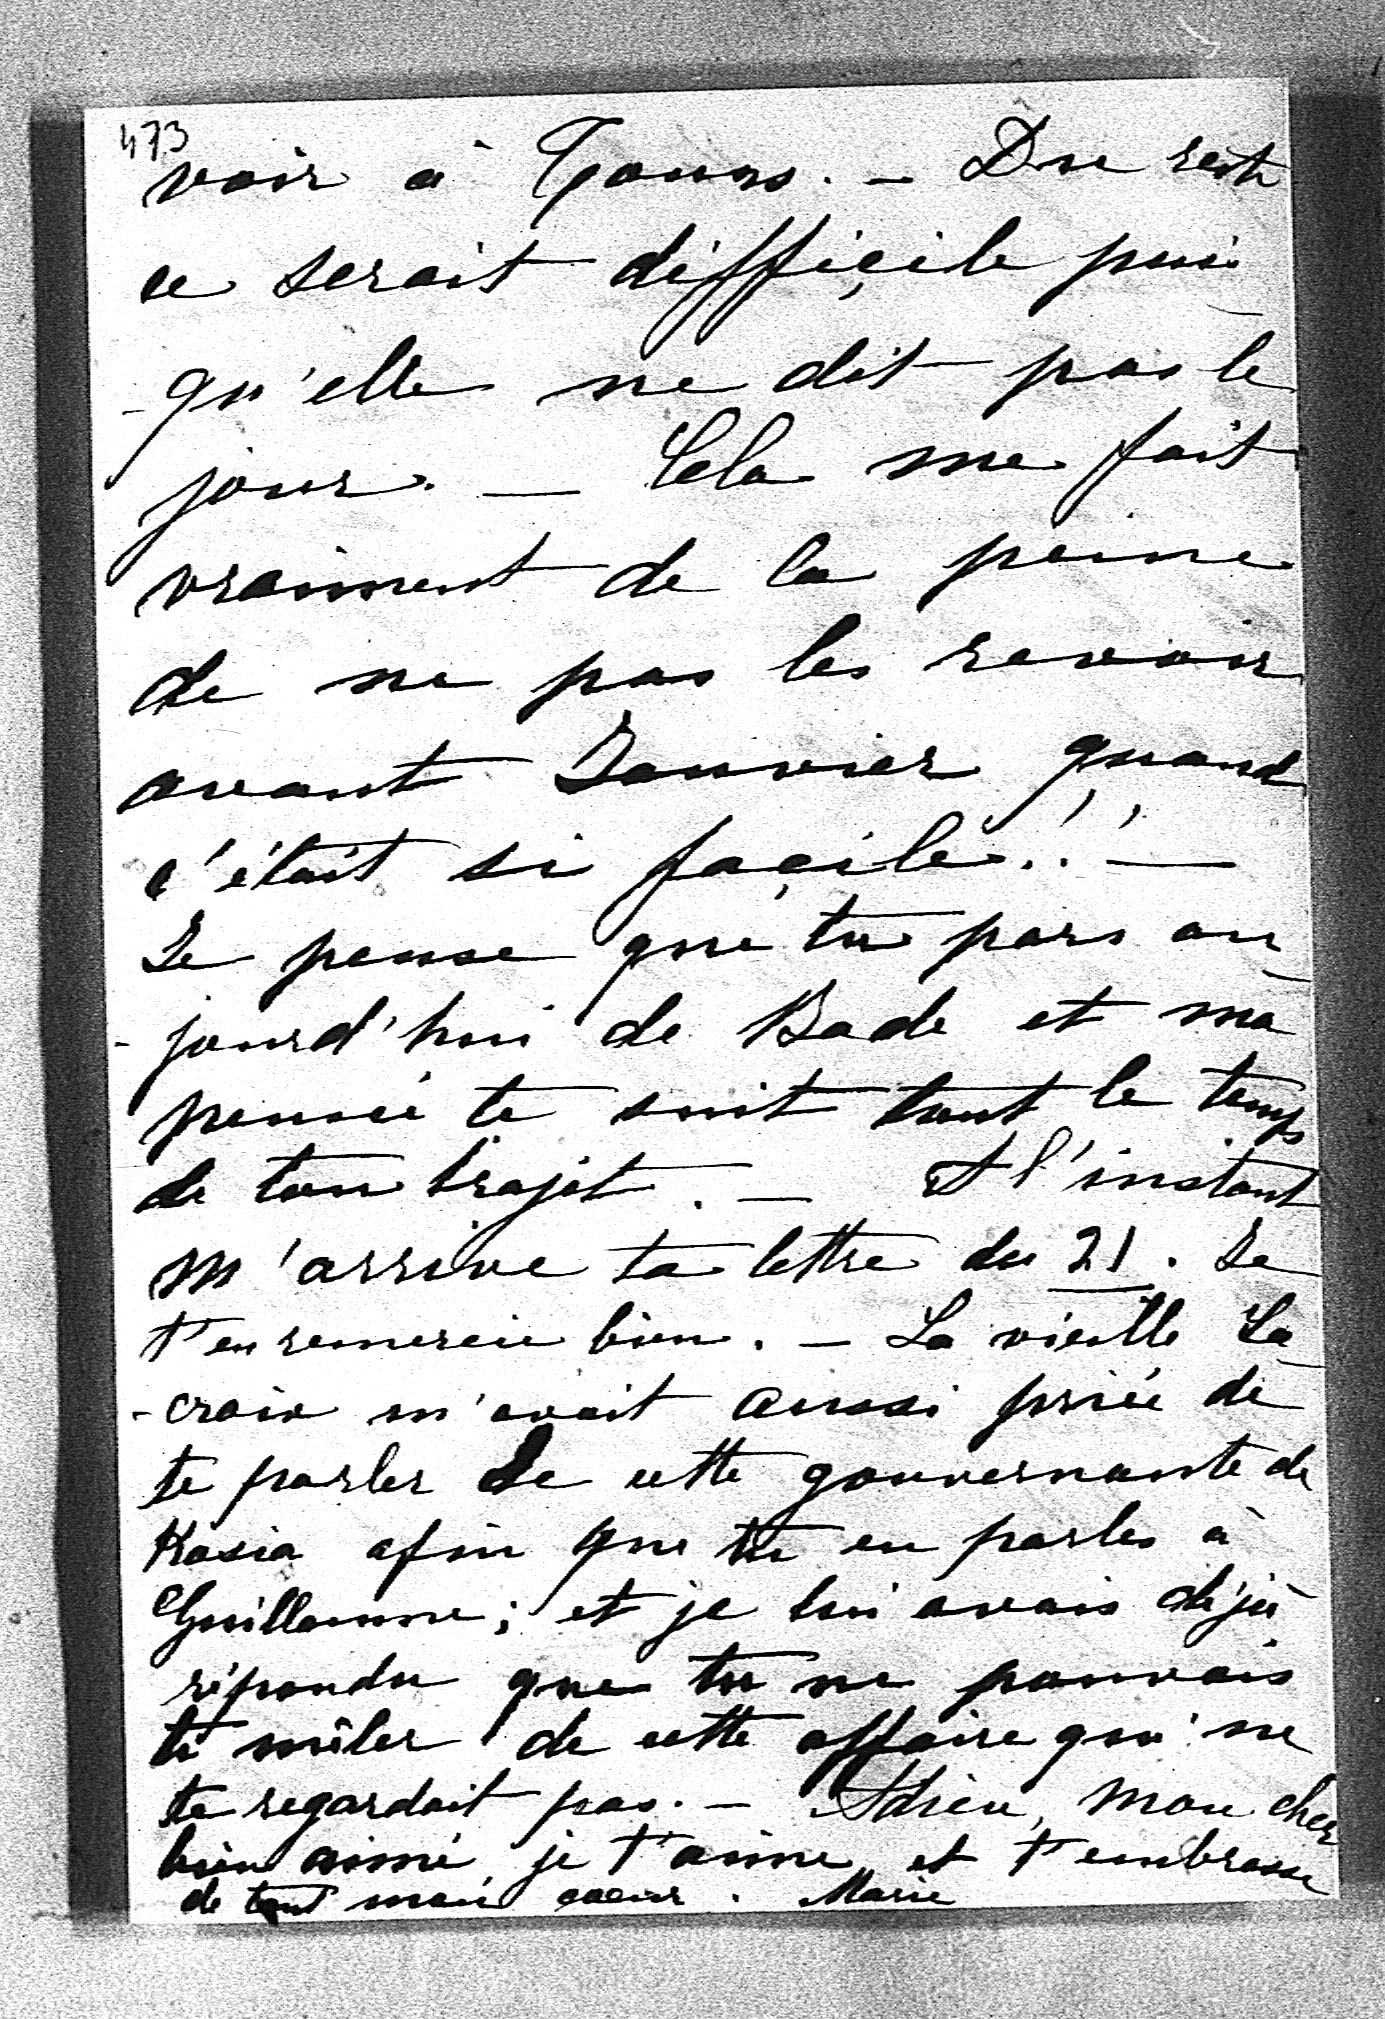 473
voir à Tours. — Du reste
ce serait difficile puis
- qu'elle ne dit pas le
jour. — Cela me fait
vraiment de la peine
de ne pas les revoir
avant Janvier quand
c'était si facile!! —
Je pense que tu pars au-
- jourd'hui de Bade et ma
pensée te suit tout le temps
de ton trajet. — A l'instant
m'arrive ta lettre du 21. Je
t'en remercie bien. — La vieille La-
- croix m'avait aussi priée de
te parler de cette gouvernante de
Kasia afin que tu en parles à
Guillaume; et je lui avais déjà
répondu que tu ne pouvais
te mêler de cette affaire qui ne
te regardait pas. — Adieu, mon cher
bien aimé, je t'aime et t'embrasse
de tout mon coeur. Marie